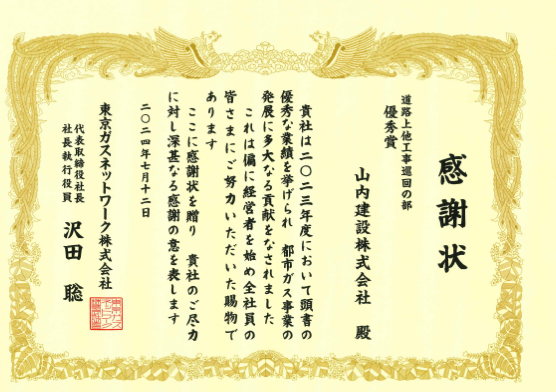 感謝状
道路上他工事巡回の部
優秀賞
山内建設株式会社 殿
貴社は二〇二三年度において頭書の
優秀な業績を挙げられ 都市ガス事業の
発展に多大なる貢献をなされました
これは偏に経営者を始め全社員の
皆さまにご努力いただいた賜物で
あります
ここに感謝状を贈り 貴社のご尽力
に対し深甚なる感謝の意を表します
二〇二四年七月十二日
東京ガスネットワーク株式会社
代表取締役社長
社長執行役員
沢田 聡